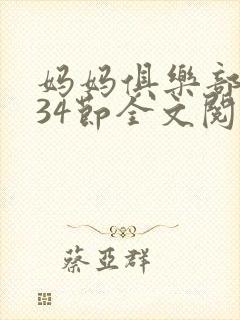 妈妈俱樂部
34節全文閱
蔡亞群